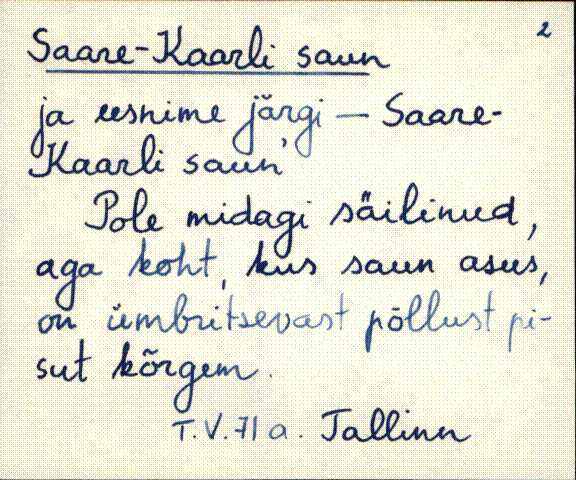 2
Saare-Kaarli saun
ja eesnime järgi — Saare-
Kaarli saun'
Pole midagi säilinud,
aga koht, kus saun asus,
on ümbritsevast põllust pi-
sut kõrgem.
T.V. 71 a. Tallinn